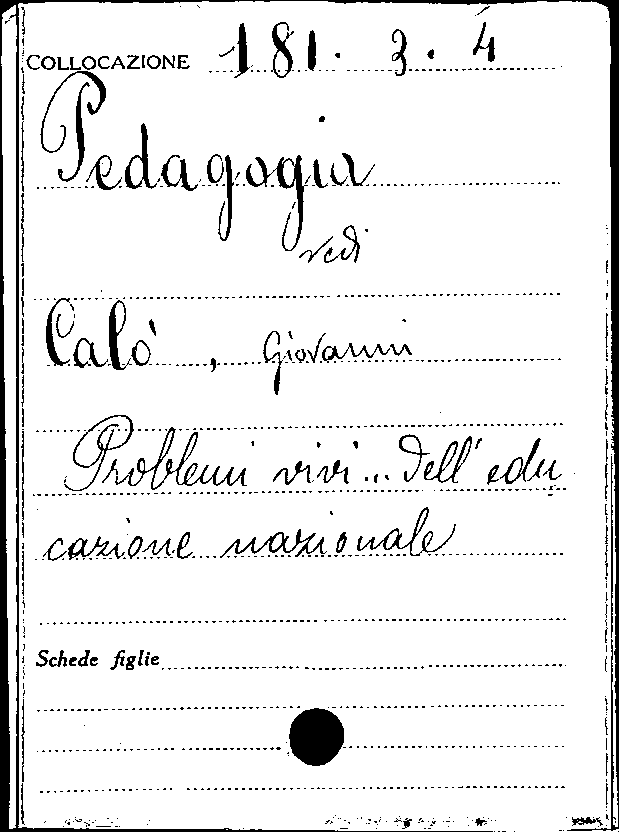 COLLOCAZIONE 181. 3. 4
Pedagogia
vedi
Calò, Giovanni
Problemi vivi... dell'edu
cazione nazionale
Schede figlie